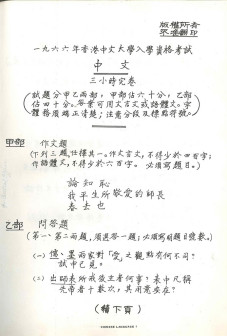 版權所有
不准翻印
一九六六年香港中文大學入學資格考試
中文
三小時完卷
(試題分甲乙兩部，甲部佔六十分，乙部
佔四十分。答案可用文言文或語體文。字
體務須端正清楚；注意分段及標點符號。)
甲部 作文題
(下列三題任擇其一。作文言文，不得少於四百字；
作語體文，不得少於六百字。必須寫題目。)
論知恥
我平生所敬愛的師長
春去也
乙部 問答題
(第一、第二兩題，須選答一題；必須寫明題目號數。)
(一) 儒、墨兩家對「愛」之觀點有何不同？
試申己見。
(二) 出師表所戒後主者何事？表中凡稱
先帝者十數次，其用意安在？
(續下頁)
CHINESE LANGUAGE 1